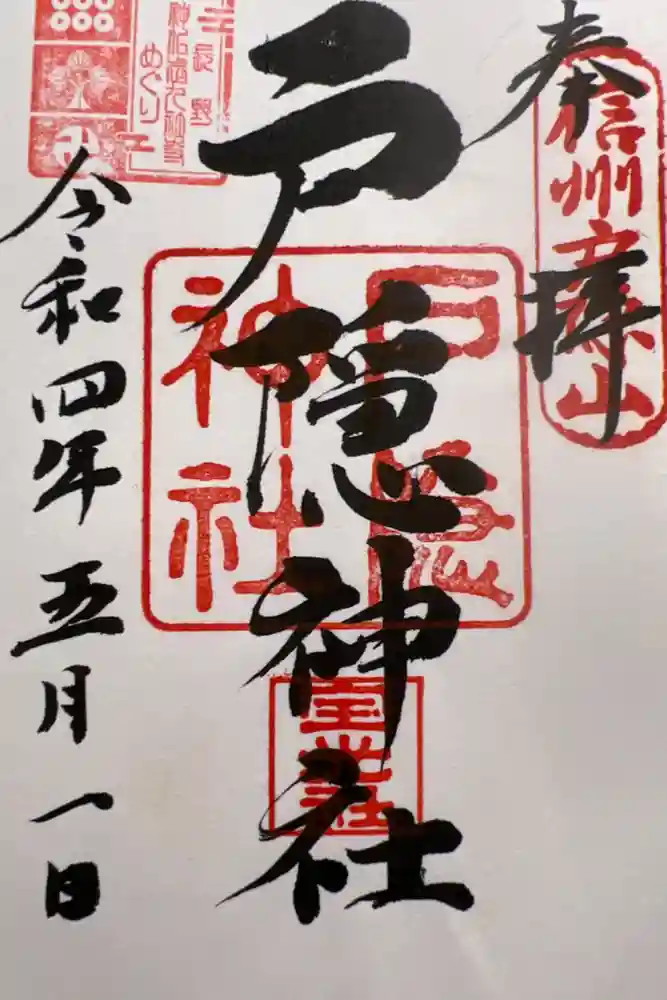 奉拝
信州
山
戸隠神社
戸隠
神社
宝光社
長野
めぐり
令和四年五月一日